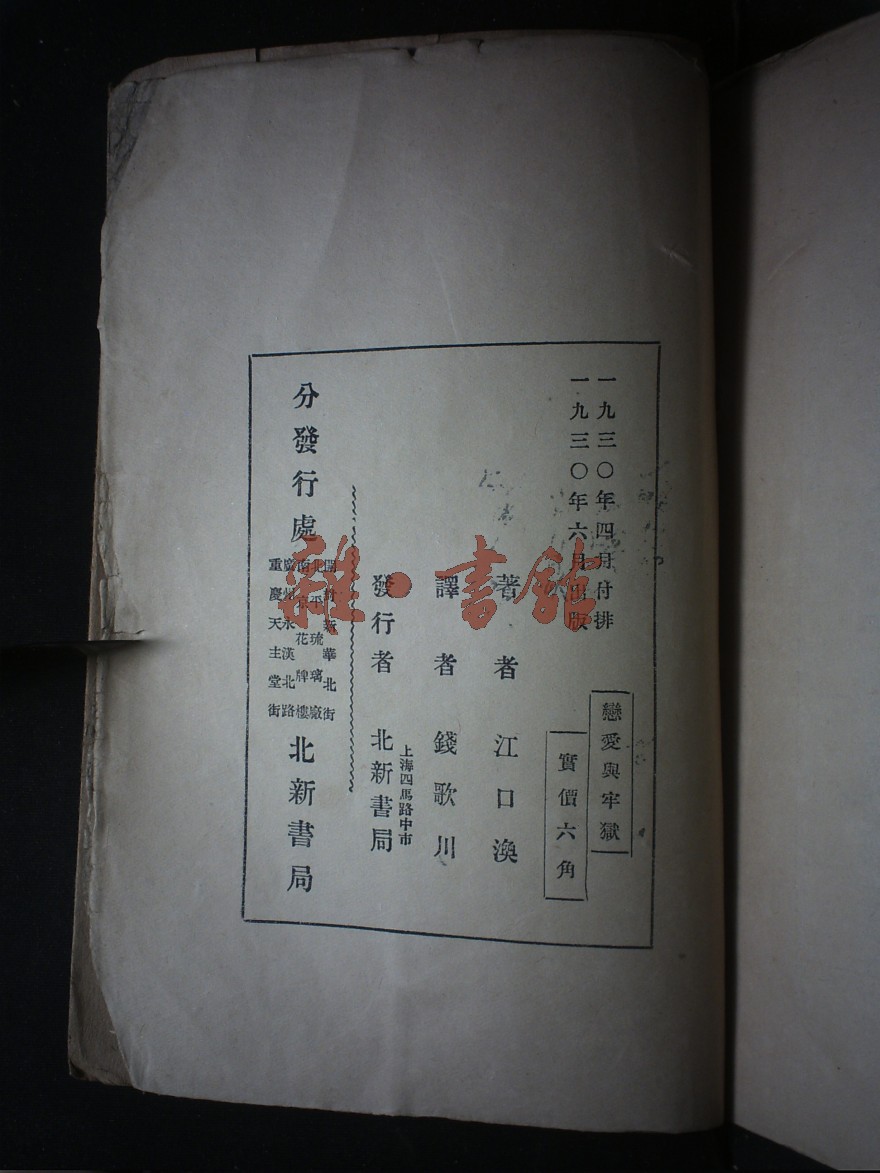 一九三〇年四月付排
一九三〇年六月出版
戀愛與牢獄
實價六角
著者 江口渙
譯者 錢歌川
發行者 上海四馬路中市 北新書局
分發行處
開封新華北街
北平琉璃廠
南京花牌樓
廣州永漢北路
重慶天主堂街
北新書局
雜·書館